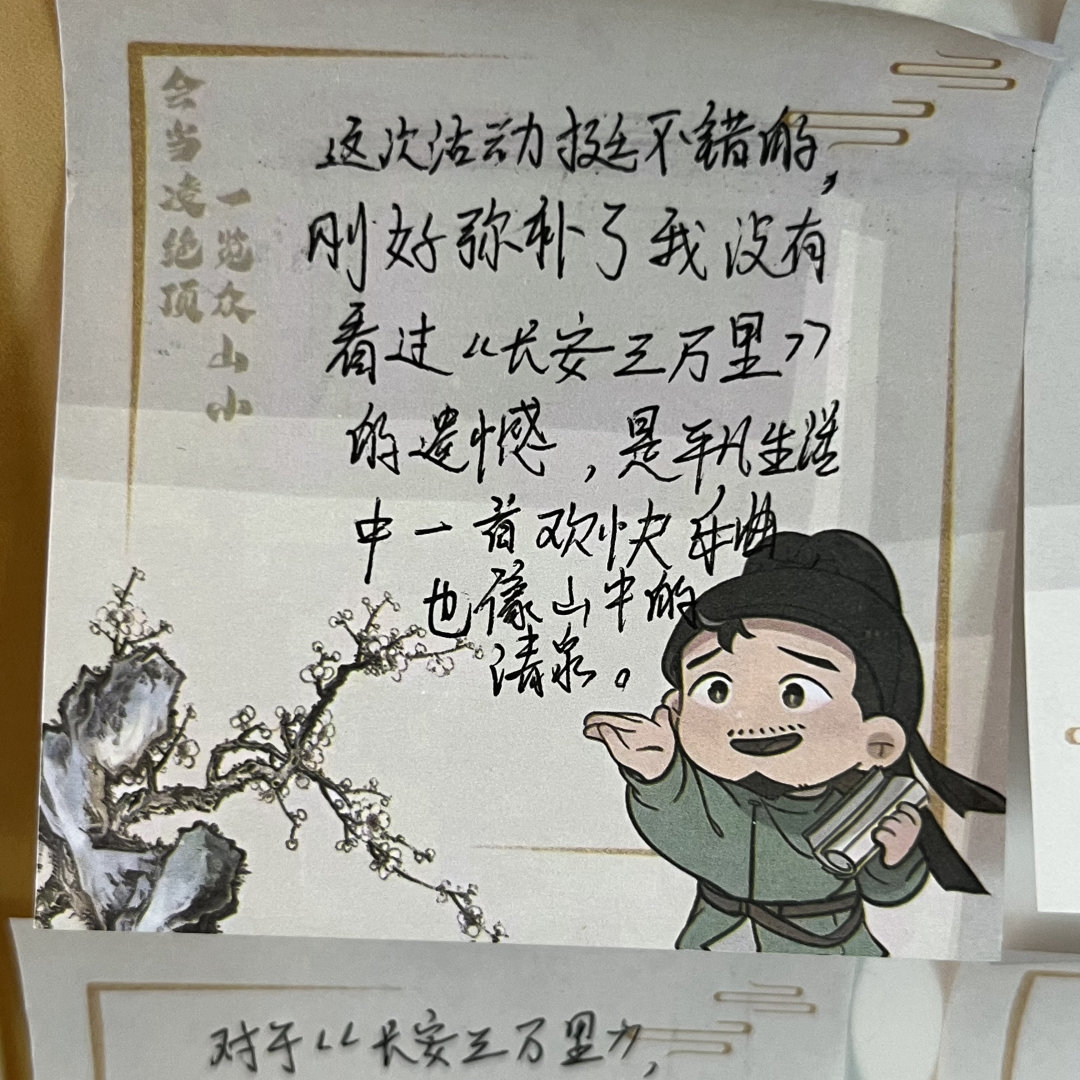 会当凌绝顶
一览众山小
这次活动挺不错的，
刚好弥补了我没有
看过《长安三万里》
的遗憾，是平凡生活
中一首欢快乐曲，
也像山中的
清泉。
对于《长安三万里》，